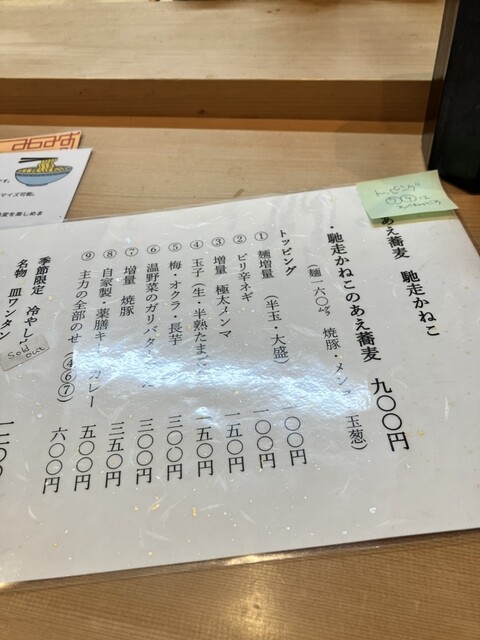 トッピング
あえ蕎麦 馳走かねこ
・馳走かねこのあえ蕎麦 九〇〇円
(麺一六〇㌘ 焼豚・メンマ 玉葱)
トッピング
① 麺増量 (半玉・大盛) 一〇〇円
② ピリ辛ネギ 一〇〇円
③ 増量 極太メンマ 一五〇円
④ 玉子(生・半熟たまご) 一五〇円
⑤ 梅・オクラ・長芋 三〇〇円
⑥ 温野菜のガリバター 三〇〇円
⑦ 増量 焼豚 三五〇円
⑧ 自家製・薬膳キーマカレー 五〇〇円
⑨ 主力の全部のせ(④⑥⑦) 六〇〇円
季節限定 冷やし
Sold out
名物 皿ワンタン
です。
マイズ可能。
変を楽しめま